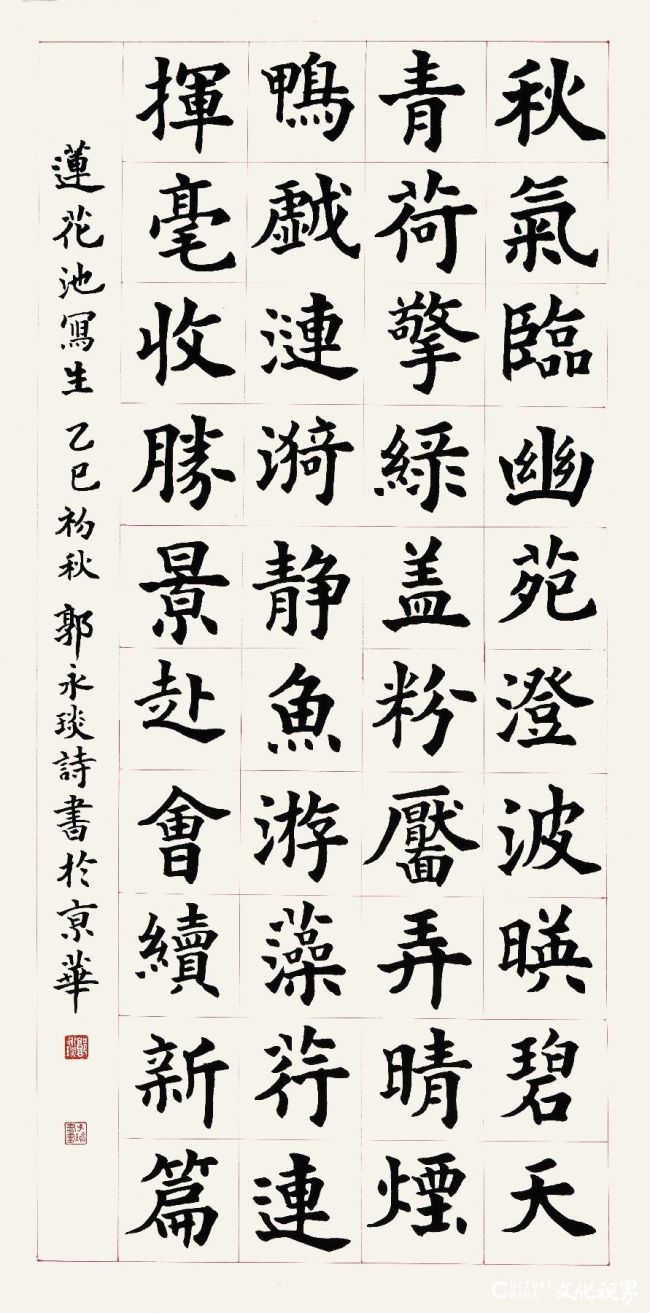 秋氣臨幽苑澄波暎碧天
青荷擎綠盖粉靨弄晴煙
鴨戱漣漪静魚游藻荇連
揮毫收勝景赴會續新篇
蓮花池寫生 乙巳初秋 郭永琰詩書於京華
郭永琰
CULTURE CHINA 文化视界